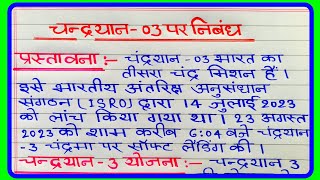 चन्द्रयान-03 पर निबंध
प्रस्तावना :- चंद्रयान-03 भारत का
तीसरा चंद्र मिशन हैं।
इसे भारतीय अंतरिक्ष अनुसंधान
संगठन (ISRO) द्वारा 14 जुलाई 2023
को लांच किया गया था। 23 अगस्त
2023 को शाम करीब 6:04 बजे चंद्रयान
-3 चंद्रमा पर सॉफ्ट लैंडिंग की।
चन्द्रयान-3 योजना :- चंद्रयान 3